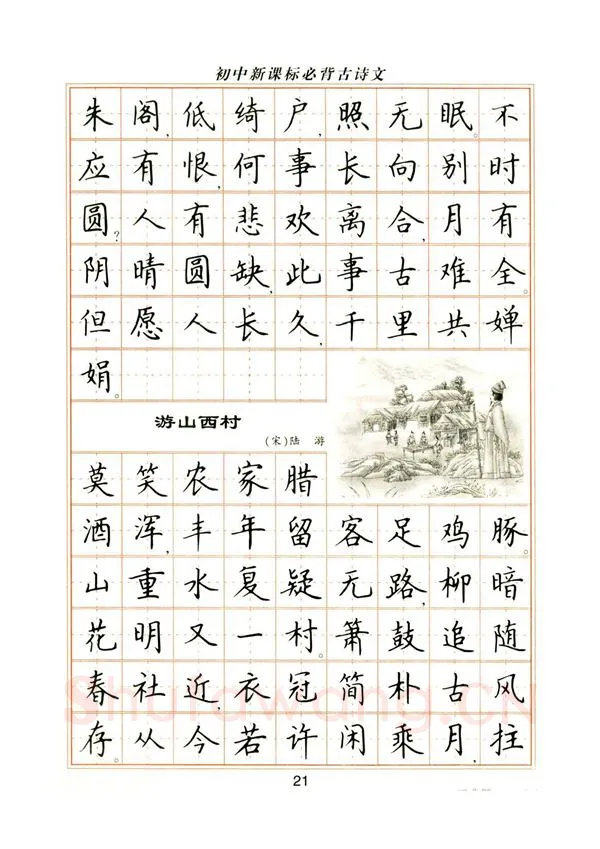 初中新课标必背古诗文
朱阁,低绮户,照无眠。不
应有恨,何事长向别时
圆?人有悲欢离合,月有
阴晴圆缺,此事古难全。
但愿人长久,千里共婵
娟。
游山西村
(宋)陆 游
莫笑农家腊
酒浑,丰年留客足鸡豚。
山重水复疑无路,柳暗
花明又一村。箫鼓追随
春社近,衣冠简朴古风
存。从今若许闲乘月,拄
Shufawang.CN
21